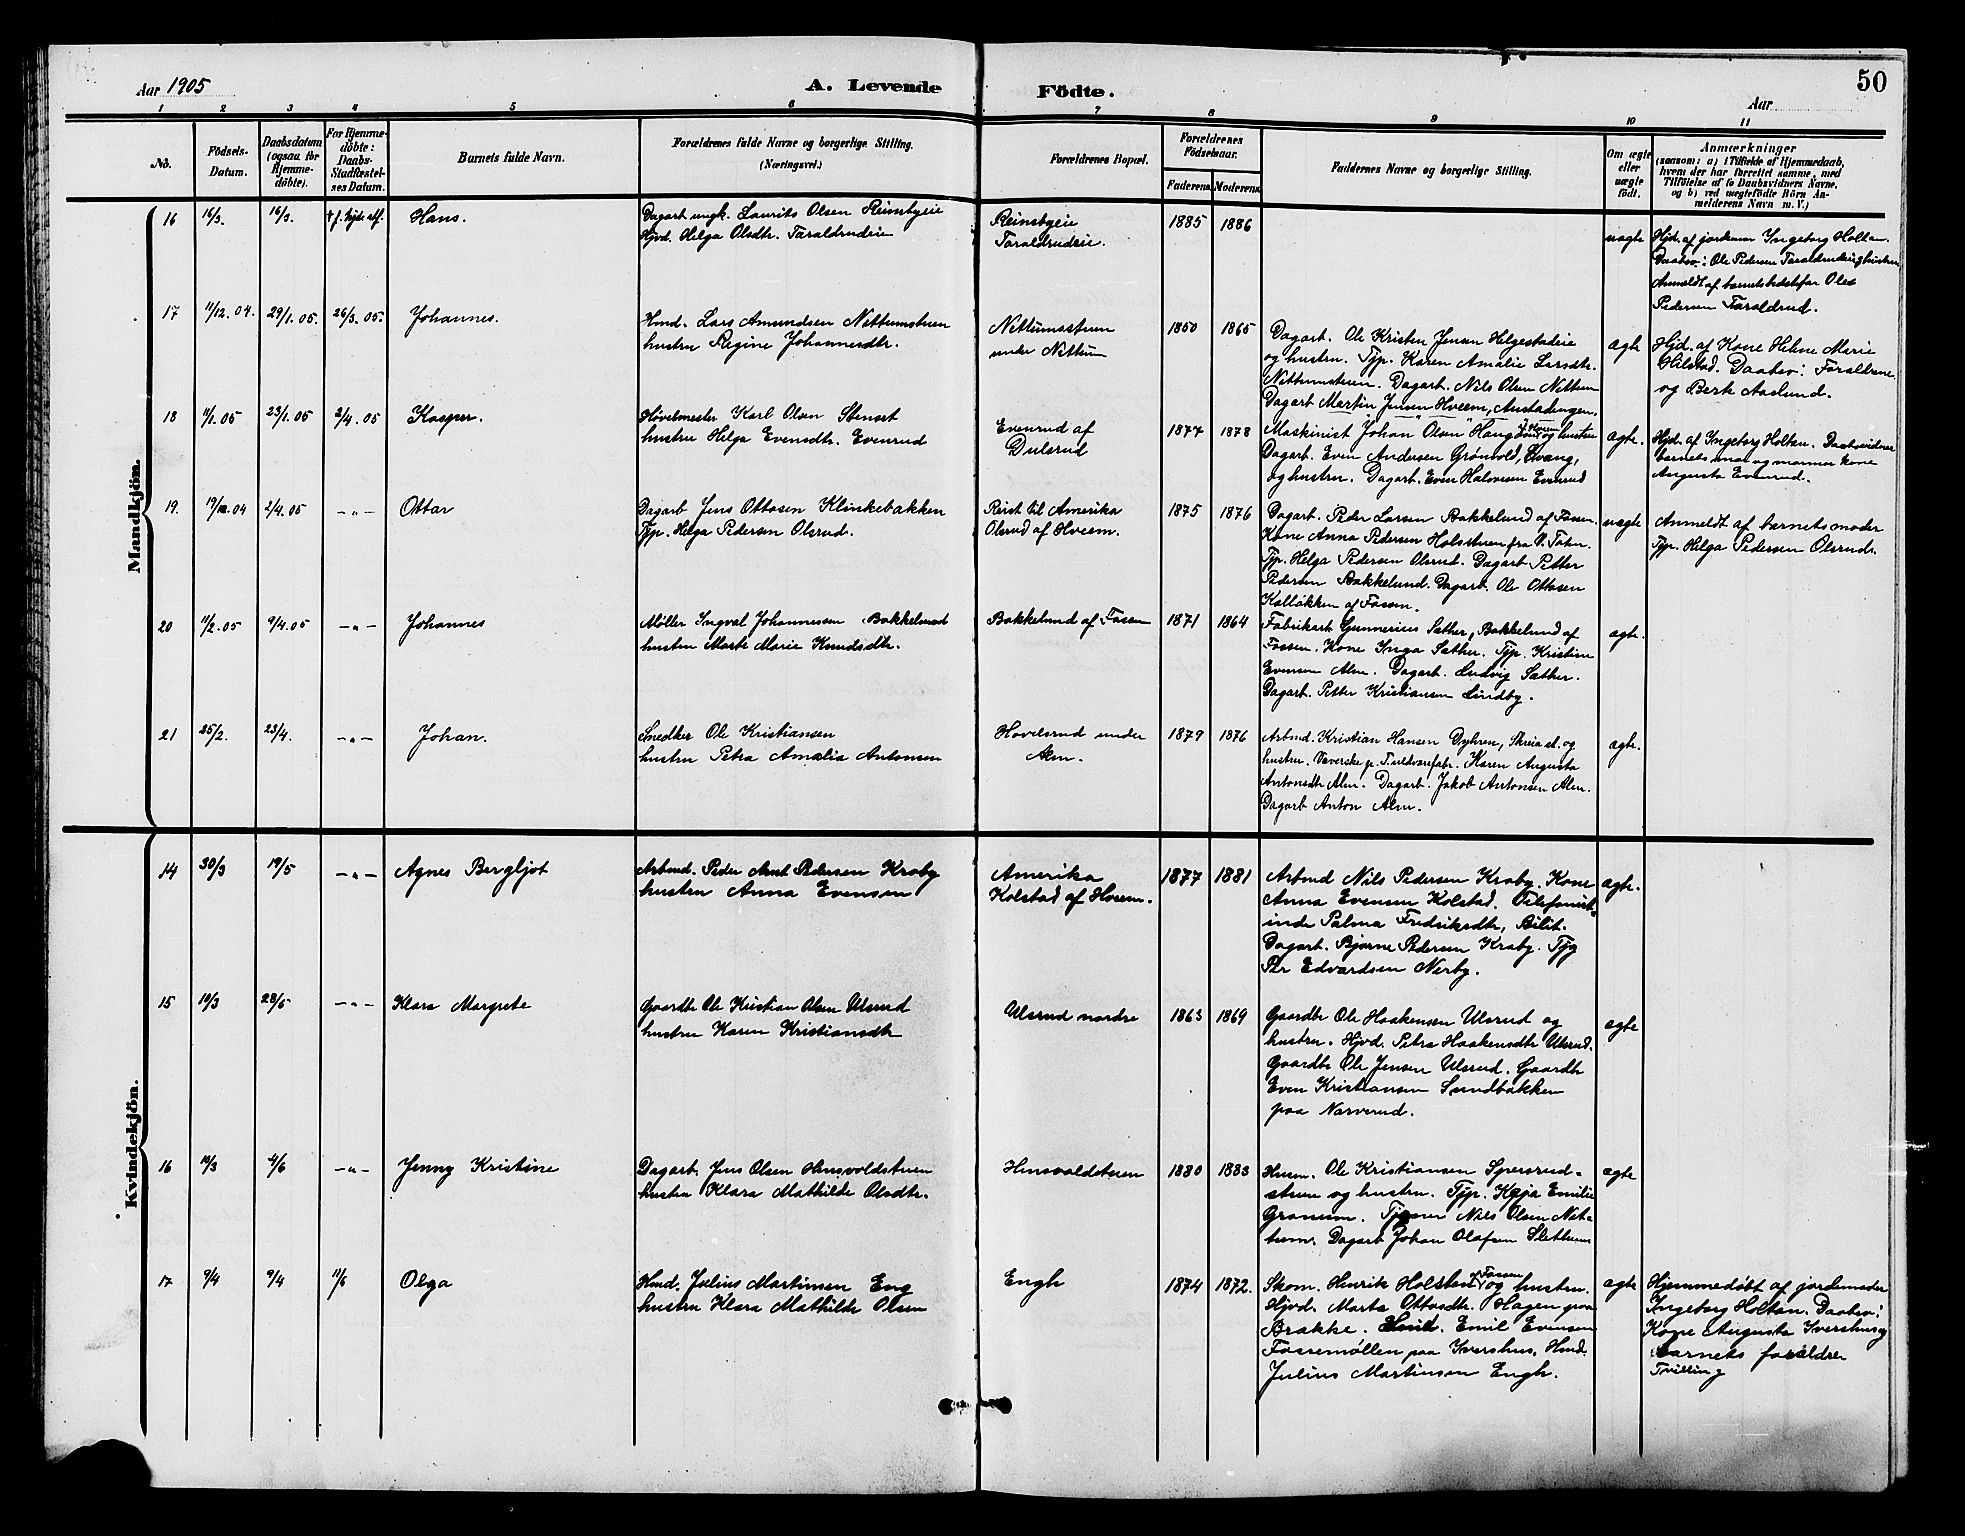 50
Aar 1905
A. Levende
Födte.
Aar
1 2 3 4 5 6 7 8 9 10 11
No.
Födsels-
Datum.
Daabsdatum
(ogsaa for
Hjemme-
döbte).
For Hjemme-
döbte:
Daabs-
Stadfæstel-
ses Datum.
Barnets fulde Navn.
Forældrenes fulde Navne og borgerlige Stilling.
(Næringsvei.)
Forældrenes Bopæl.
Forældrenes
Födselsaar.
Faderens. Moderens.
Faddernes Navne og borgerlige Stilling.
Om ægte
eller
uægte
födt.
Anmærkninger
(saasom: a) i Tilfælde af Hjemmedaab,
hvem der har forrettet samme, med
Tilföielse af to Daabsvidners Navne,
og b) ved uægtefödte Börn An-
melderens Navn m. V.)
Mandkjöm.
16 16/3. 16/3. Hans.
Dagarb. ungk. Laurits Olsen Reinsbyeie
Hjvd. Helga Olsdtr. Taraldrudeie
Reinsbyeie
Taraldrudeie.
1885 1886
uægte
Hjd. af jordemor Ingeborg Holtan.
Daabsv.: Ole Pedersen Taraldrudeie og hustru
Anmeldt af barnets bedstefar Ole
Pedersen Taraldrud.
17 11/12.04. 29/1.05. 26/3.05. Johannes.
Hmd. Lars Amundsen Nettumstuen
hustru Regine Johannesdtr.
Nettumsstuen
under Nettum
1850 1865
Dagarb. Ole Kristen Jensen Helgestadeie
og hustru. Tjp. Karen Amalie Larsdtr.
Nettumstuen. Dagarb. Nils Olsen Nettum
Dagarb Martin Jensen Hveem, Austadengen.
ægte
Hjd. af Kone Helene Marie
Hilstad. Daabsv: Forældrene
og Berte Aaslund.
18 11/1.05 23/1.05 2/4.05 Kasper.
Høvelmester Karl Olsen Stenset
hustru Helga Evensdtr. Evenrud
Evenrud af
Dulsrud
1877 1878
Maskinist Johan Olsen og hustru
Dagarb. Even Andersen Grønvold, Kvang,
og hustru. Dagarb. Even Halvorsen Evenrud
ægte.
Hjd. af Ingeborg Holtan. Daabsvidner
barnets mor og mormor kone
Augusta Evenrud.
19. 2/4.05 -"- Ottar
Dagarb Jens Ottosen Klinkebakken
Tjp. Helga Pedersen Olsrud.
Reist til Amerika
Olsrud af Hveem.
1875 1876
Dagarb. Peder Larsen Bakkelund af Fossen.
Kone Anna Pedersen Holsstuen fra V. Toten.
Tjp. Helga Pedersen Olsrud. Dagarb Petter
Pedersen Bakkelund. Dagarb. Ole Ottosen
Kalløkken af Fossen.
uægte
Anmeldt af barnets moder
Tjp. Helga Pedersen Olsrud.
20 11/2.05 9/4.05 -"- Johannes
Møller Ingval Johannesen Bakkelund
hustru Marte Marie Knudsdtr.
Bakkelund af Fossen
1871 1864
Fabrikarb Gunnerius Sæther, Bakkelund af
Fossen. Kone Inga Sæther. Tjp. Kristine
Evensen Alm. Dagarb. Ludvig Sæther.
Dagarb. Petter Kristiansen Lundby.
ægte.
21 25/2. 23/4. -"- Johan.
Snedker Ole Kristiansen
hustru Petra Amalia Antonsen
Hovelsrud under
Alm.
1879 1876
Arbmd. Kristian Hansen Dyhren, Skreia st. og
hustru. Væverske p. Karen Augusta
Antonsdtr Alm. Dagarb. Jakob Antonsen Alm.
Dagarb Anton Alm.
ægte.
Kvindekjön.
14 30/3 19/5 -"- Agnes Bergljot
Arbmd. Peder Arnt Pedersen Kraby
hustru Anna Evensen
Amerika
Kolstad af Hveem.
1877 1881
Arbmd Nils Pedersen Kraby. Kone
Anna Evensen Kolstad. Telefonist-
inde Palma Fredriksdtr, Bilit.
Dagarb. Bjarne Pedersen Kraby. Tjg
Per Edvardsen Nerby.
ægte.
15 10/3 28/5 -"- Klara Margrete
Gaardbr Ole Kristian Olsen Ulsrud
hustru Karen Kristiansdtr
Ulsrud nordre
1863 1869
Gaardbr Ole Haakensen Ulsrud og
hustru. Hjvd. Petra Haakensdtr Ulsrud.
Gaardbr Ole Jensen Ulsrud. Gaardbr
Even Kristiansen Sundbakken
paa Narverud.
ægte
16 10/3 4/6 -"- Jenny Kristine
Dagarb. Jens Olsen Hensvoldstuen
hustru Klara Mathilde Olsdtr.
Hensvoldstuen
1880 1883
Husm. Ole Kristiansen Spersrud-
stuen og hustru. Tjp. Kaja Emilie
Granum. Nils Olsen Net-
tum. Dagarb Johan Olafsen Slettum
ægte
17 9/4 9/4 11/6 Olga
Hmd. Julius Martinsen Eng
hustru Klara Mathilde Olsen
Engh
1874 1872.
Skom. Henrik Holsten af Fossen og hustru.
Hjvd. Marta Ottosdtr. Hagen paa
Brakke. Hmd. Emil Evensen
Fossemøllen paa Ivershus. Hmd.
Julius Martinsen Engh.
ægte
Hjemmedøbt af jordemoder
Ingeborg Holtan. Daabsv:
Kone Augusta Ivershus og
barnets forældre
Tvilling